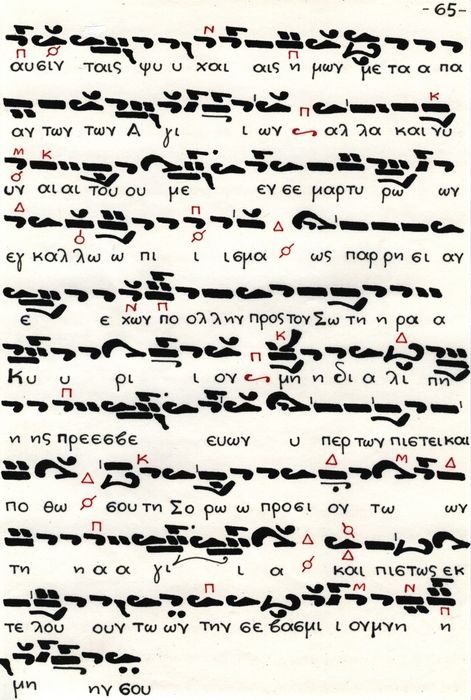 -65-
αυσιν ταις ψυ υ χαι αις η μων με τα α πα
αν των των Α γι ι ων αλ λα και νυ
υν αι αι του ου με εν σε μαρτυ ρω ων
εγ καλ λω ω πι ι ισμα ως παρ ρη σι αν
ε ε χων πο ολ λην προς τον Σω τη η ρα α
Κυ υ ρι ι ον μη η δι α λι πη
η ης πρεεσβε ευων υ περ των πιστει και
πο θω σου τη Σο ρω ω προσι ον τω ων
τη η α α γι ι α και πιστως εκ
τε λου ουν τω ων την σε βασμι ι ον μνη η
μη ην σου